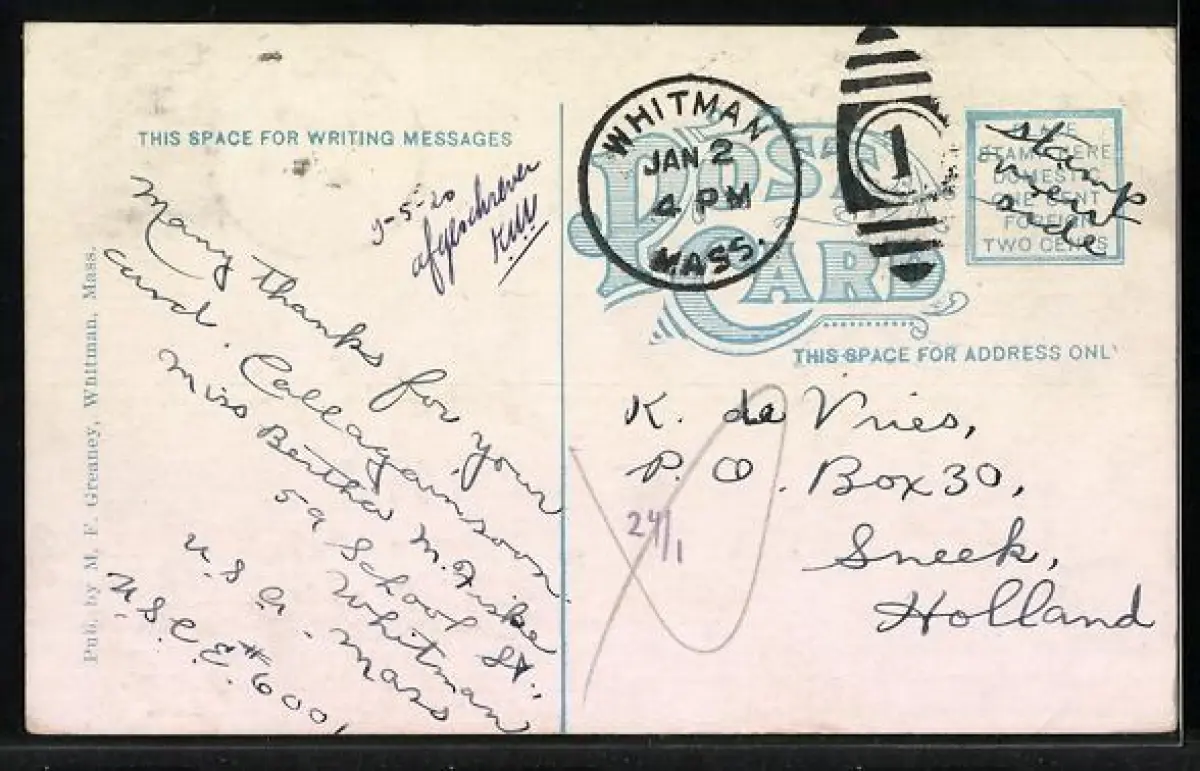 THIS SPACE FOR WRITING MESSAGES
9-5-20
afgeschreven
KW
Many thanks for your
card. Call again soon.
Miss Bertha M. Fiske
59 School St.,
Whitman
Mass
U.S.A.
U.S.C.E. #600,
Pub. by M. F. Greaney, Whitman, Mass.
WHITMAN
JAN 2
4 PM
MASS.
1
POST CARD
PLACE
STAMP HERE
DOMESTIC
ONE CENT
FOREIGN
TWO CENTS
stamp
side
THIS SPACE FOR ADDRESS ONLY
K. de Vries,
P. O. Box 30,
Sneek,
Holland
24/1